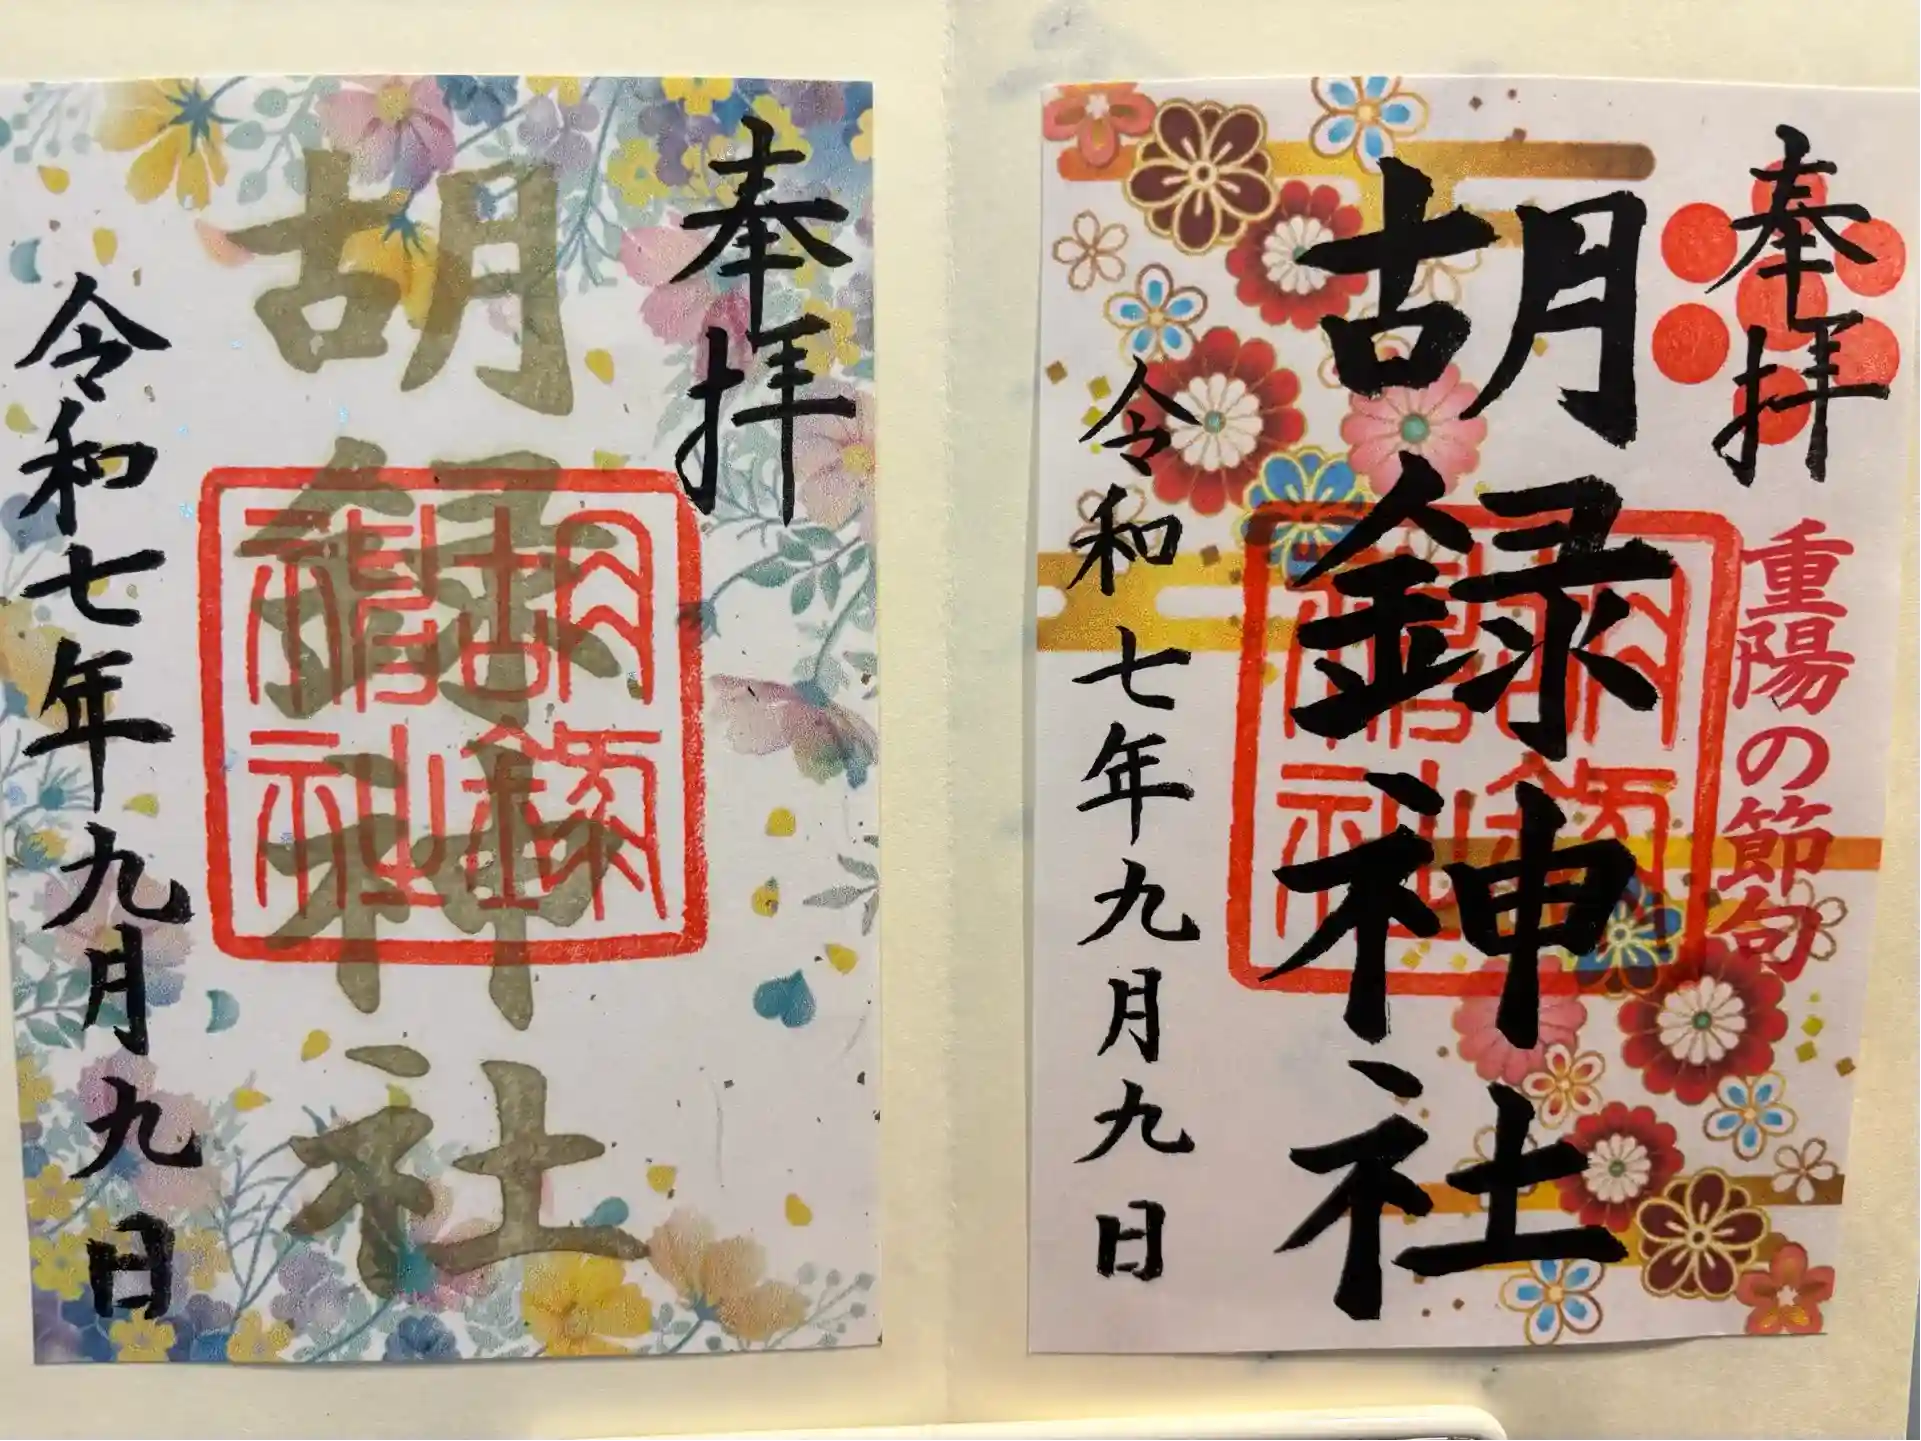 奉拝
胡録神社
令和七年九月九日
奉拝
重陽の節句
胡録神社
令和七年九月九日